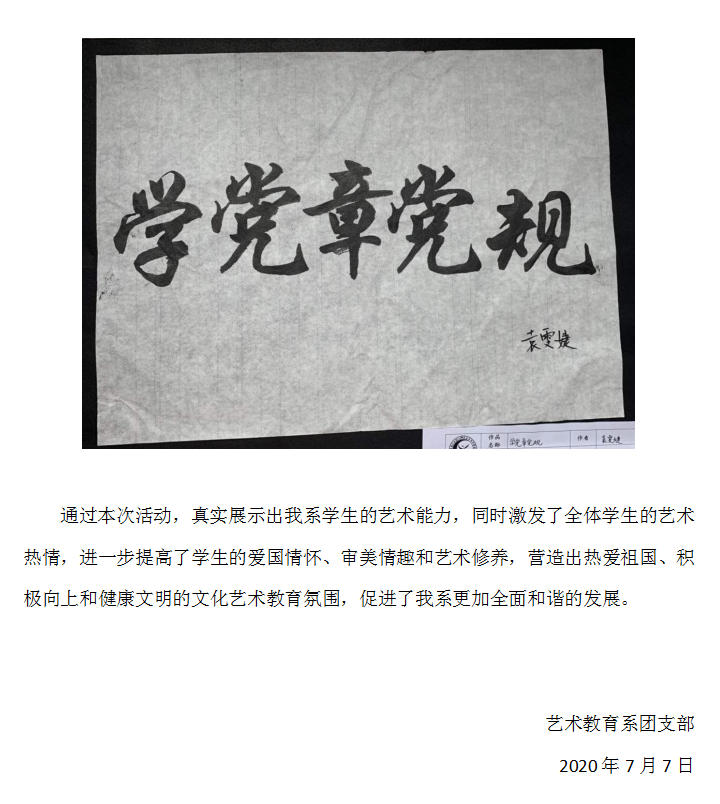 学党章党规
袁雯婕
作品
名称
学党章党规
作者
袁雯婕
通过本次活动，真实展示出我系学生的艺术能力，同时激发了全体学生的艺术
热情，进一步提高了学生的爱国情怀、审美情趣和艺术修养，营造出热爱祖国、积
极向上和健康文明的文化艺术教育氛围，促进了我系更加全面和谐的发展。
艺术教育系团支部
2020 年 7 月 7 日